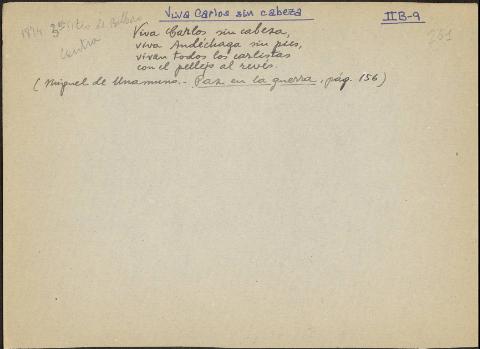 Viva Carlos sin cabeza
IIB-9
1874
de Bilbao
231
contra
Viva Carlos sin cabeza,
viva Andéchaga sin pies,
vivan todos los carlistas
con el pellejo al revés.
(Miguel de Unamuno.- Paz en la guerra, pág. 156)